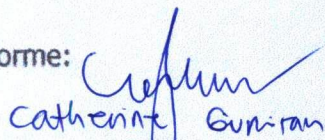 orme:
Catherine Gumiran